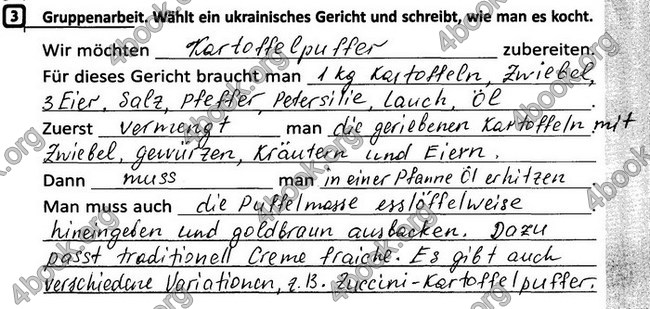 3 Gruppenarbeit. Wählt ein ukrainisches Gericht und schreibt, wie man es kocht.
Wir möchten Kartoffelpuffer zubereiten.
Für dieses Gericht braucht man 1 kg Kartoffeln, Zwiebel,
3 Eier, Salz, Pfeffer, Petersilie, Lauch, Öl.
Zuerst vermengt man die geriebenen Kartoffeln mit
Zwiebel, Gewürzen, Kräutern und Eiern.
Dann muss man in einer Pfanne Öl erhitzen
Man muss auch die Puffelmasse esslöffelweise
hineingeben und goldbraun ausbacken. Dazu
passt traditionell Creme fraiche. Es gibt auch
verschiedene Variationen, z.B. Zuccini-Kartoffelpuffer.